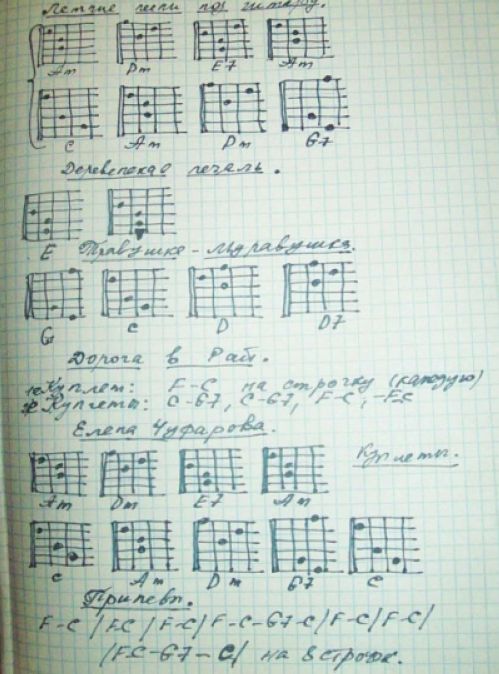 Летние под гитару.
Am Dm E7 Am
C Am Dm G7
Деревенская печаль.
E
Травушка-муравушка.
G C D D7
Дорога в Рай.
Куплет: F-C на строчку (каждую)
Куплеты: C-G7, C-G7, F-C, -FC
Елена Чуфарова.
Куплеты.
Am Dm E7 Am
C Am Dm G7 C
Припевы.
F-C / F-C / F-C / F-C-G7-C / F-C / F-C /
/ F-C-G7-C / на 8 строк.